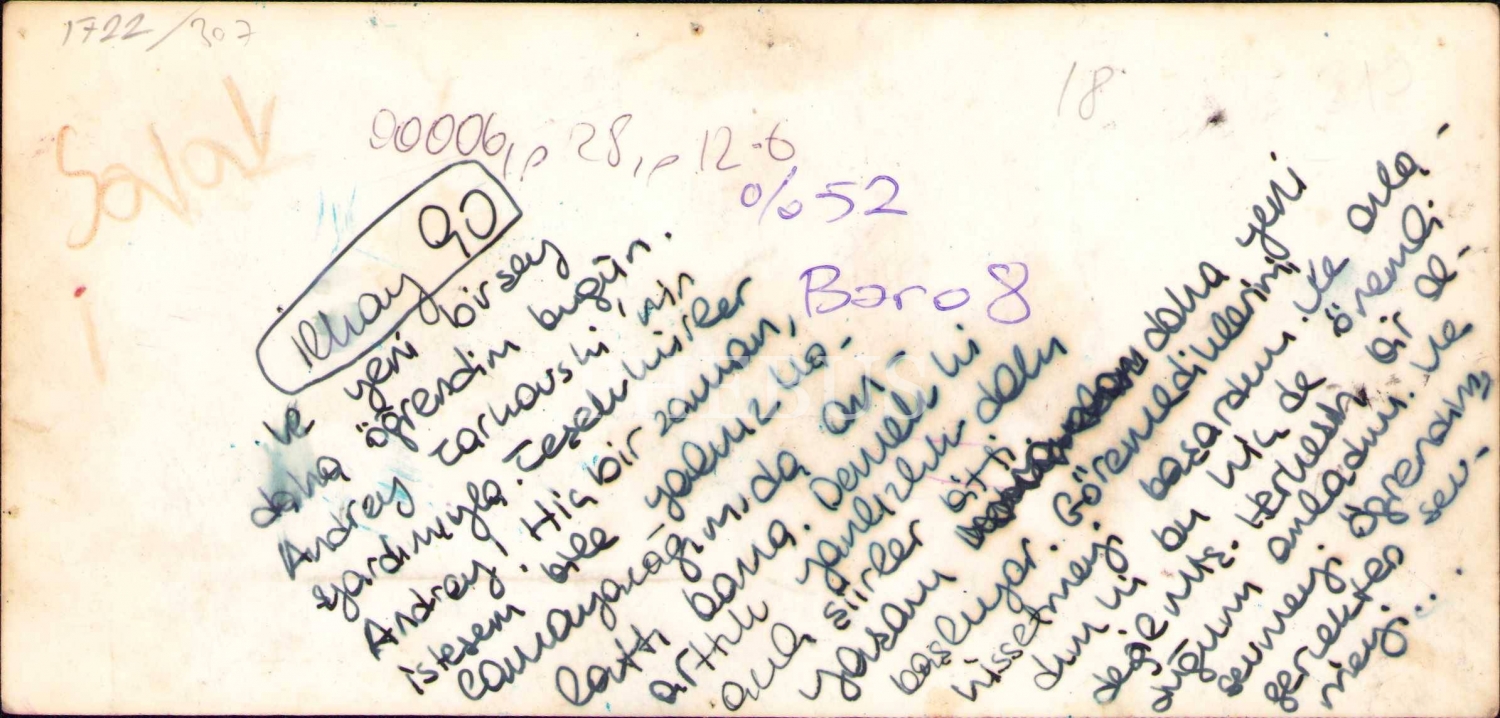 1722/307
18
Salak
00006,, 28,, 12.6
%52
Baro 8
ilhay 90
ve yeni birsey
daha öğrendim bugün.
Andrey Tarkovski'nin
yardımıyla. Teşekkürler
Andrey! Hiç bir zaman,
istesem bile yalnız ka-
lamayacağımıda an-
lattı bana. Demek ki
artık yanlızlık dolu
acılı şiirler bitti.
Yaşam daha yeni
başlıyor. Göremediklerimi
hissetmeyi başardım. Ve anla-
dım ki bu hiç de önemli
değilmiş. Herkesin bir de-
düğünü anladım. Ve
sevmeyi öğrendim,
gerçekten sev-
meyi...
HEBUS